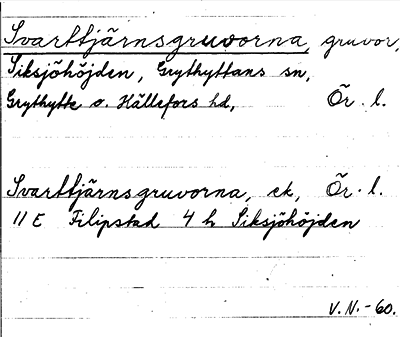 Svarttjärnsgruvorna, gruvor,
Siksjöhöjden, Grythyttans sn,
Grythytte o. Hällefors hd, Ör. l.
Svarttjärnsgruvorna, ek, Ör. l.
11 E Filipstad 4 h Siksjöhöjden
V.N.-60.